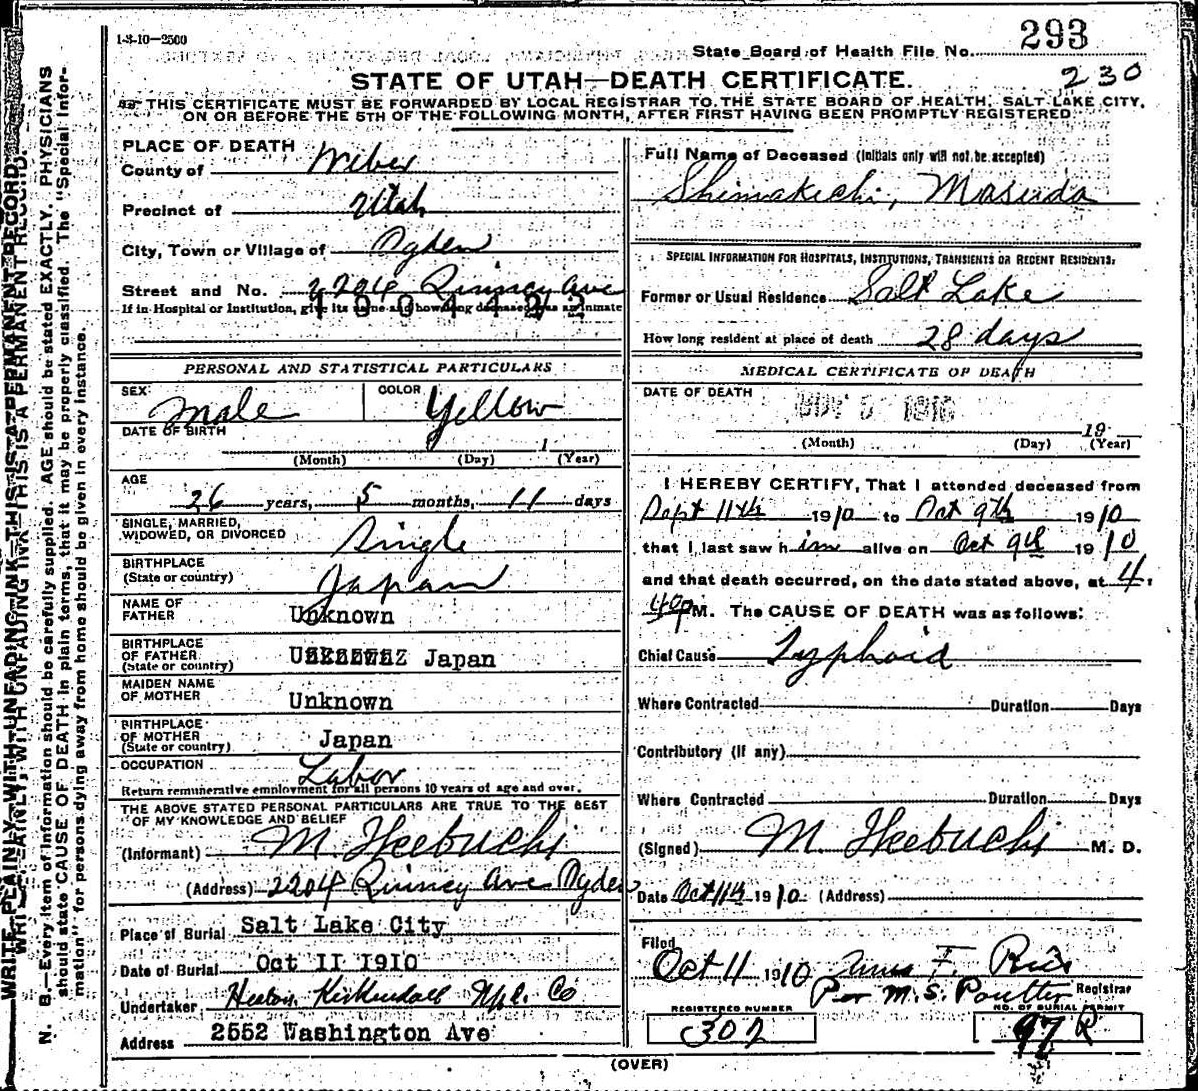 1-3-10-2500
State Board of Health File No. 293
230
STATE OF UTAH—DEATH CERTIFICATE.
THIS CERTIFICATE MUST BE FORWARDED BY LOCAL REGISTRAR TO THE STATE BOARD OF HEALTH, SALT LAKE CITY,
ON OR BEFORE THE 5TH OF THE FOLLOWING MONTH, AFTER FIRST HAVING BEEN PROMPTLY REGISTERED
WRITE PLAINLY WITH UNFADING INK—THIS IS A PERMANENT RECORD.
N. B.—Every item of information should be carefully supplied. AGE should be stated EXACTLY. PHYSICIANS
should state CAUSE OF DEATH in plain terms, that it may be properly classified. The "Special Infor-
mation" for persons dying away from home should be given in every instance.
PLACE OF DEATH
County of Weber
Precinct of Utah
City, Town or Village of Ogden
Street and No. 2204 Quincy Ave
If in Hospital or Institution, give its name and how long deceased was an inmate
PERSONAL AND STATISTICAL PARTICULARS
SEX Male COLOR Yellow
DATE OF BIRTH
1
(Month) (Day) (Year)
AGE
26 years, 5 months, 11 days
SINGLE, MARRIED,
WIDOWED, OR DIVORCED Single
BIRTHPLACE
(State or country) Japan
NAME OF
FATHER Unknown
BIRTHPLACE
OF FATHER
(State or country) Japan
MAIDEN NAME
OF MOTHER Unknown
BIRTHPLACE
OF MOTHER
(State or country) Japan
OCCUPATION Labor
Return remunerative employment for all persons 10 years of age and over.
THE ABOVE STATED PERSONAL PARTICULARS ARE TRUE TO THE BEST
OF MY KNOWLEDGE AND BELIEF
(Informant) M. Ikebuchi
(Address) 2204 Quincy Ave Ogden
Place of Burial Salt Lake City
Date of Burial Oct 11 1910
Undertaker Kirkendall Co
Address 2552 Washington Ave
Full Name of Deceased (Initials only will not be accepted)
Shimakichi, Masuda
SPECIAL INFORMATION FOR HOSPITALS, INSTITUTIONS, TRANSIENTS OR RECENT RESIDENTS:
Former or Usual Residence Salt Lake
How long resident at place of death 28 days
MEDICAL CERTIFICATE OF DEATH
DATE OF DEATH
19
(Month) (Day) (Year)
I HEREBY CERTIFY, That I attended deceased from
Sept 11th 1910 to Oct 9th 1910
that I last saw him alive on Oct 9th 1910
and that death occurred, on the date stated above, at 4.
40 P M. The CAUSE OF DEATH was as follows:
Chief Cause Typhoid
Where Contracted Duration Days
Contributory (If any)
Where Contracted Duration Days
(Signed) M. Ikebuchi M. D.
Date Oct 11th 1910. (Address)
Filed
Oct 11 1910 F.
Per M. S. Poulter Registrar
REGISTERED NUMBER
302
NO. OF BURIAL PERMIT
97 R
(OVER)